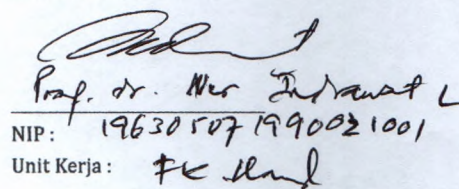 Prof. dr. Nur Indrawat L
NIP : 196305071990021001
Unit Kerja : FK Unand